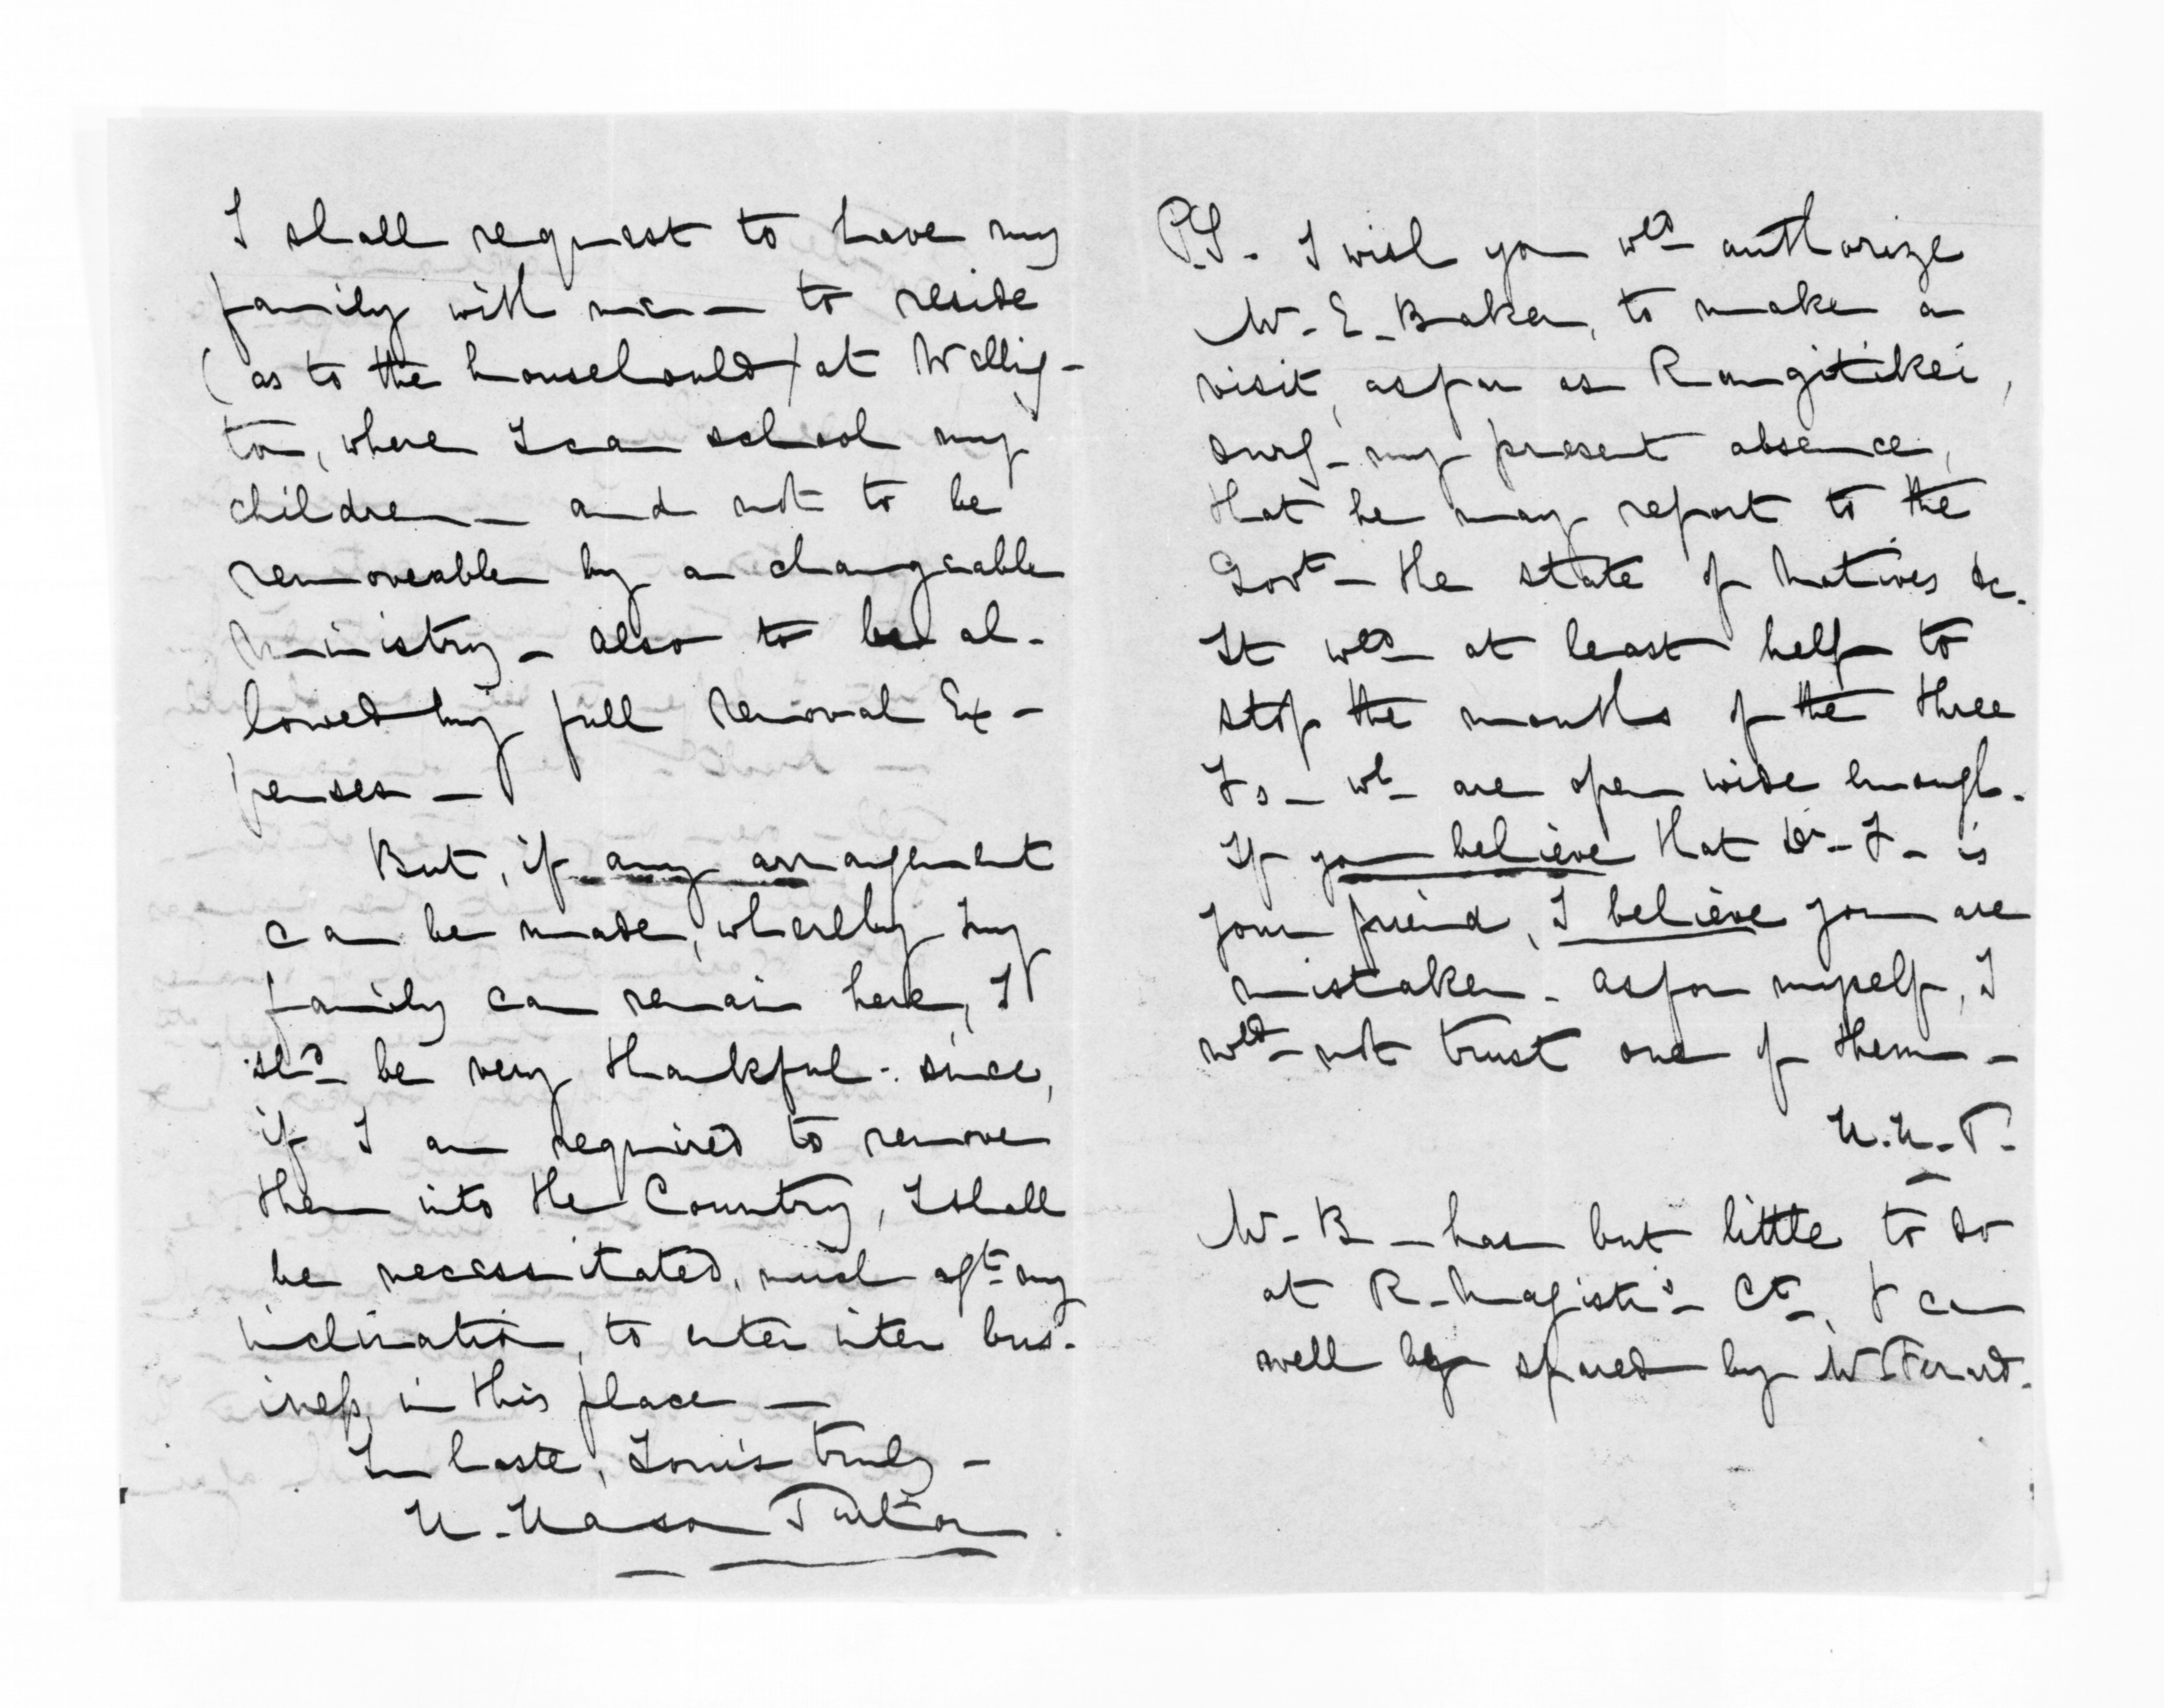 I shall request to have my
family with me — to reside
(as to the househould) at Welling-
ton, where I can school my
children — and not to be
removeable by a changeable
Ministry — also to be al-
lowed my full removal Ex-
penses —
But, if any arrangement
can be made, whereby my
family can remain here, I
shd. be very thankful - since,
if I am required to remove
them into the Country, I shall
be necessitated, much agt. my
inclination, to enter inter bus-
iness, in this place —
In haste, Yours truly -
H. Hanson Turton.
P.S. I wish you wld. authorize
W. E. Baker, to make a
visit, as far as Rangitikei,
durg. my present absence,
that he may report to the
Govt. - the state of Natives &c.
It wld. at least help to
stop the mouths of the three
Fs - wh. are open wide enough.
If you believe that Dr. F - is
your friend, I believe you are
mistaken - as for myself, I
wld. not trust one of them -
H.H.T.
W. B - has but little to do
at R. Magistr's Ct., & can
well be spared by